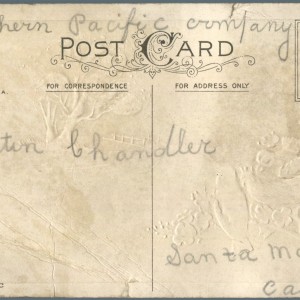 hern Pacific company
POST CARD
FOR CORRESPONDENCE
FOR ADDRESS ONLY
A.
tin Chandler
Santa Mo
Ca